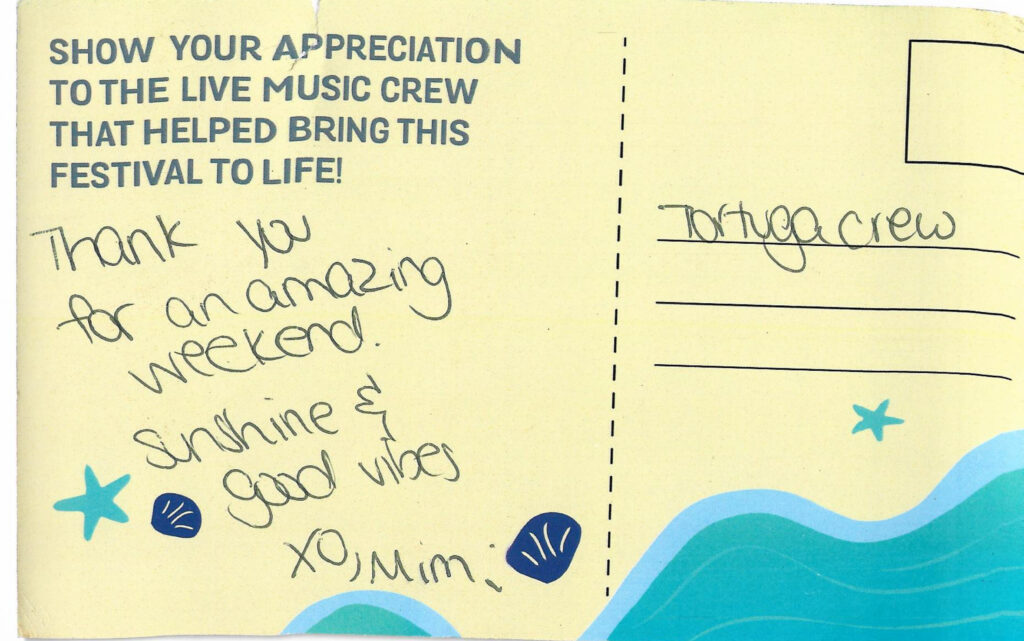 SHOW YOUR APPRECIATION
TO THE LIVE MUSIC CREW
THAT HELPED BRING THIS
FESTIVAL TO LIFE!
Thank you
for an amazing
weekend.
sunshine &
good vibes
XO, Mimi
Tortuga crew